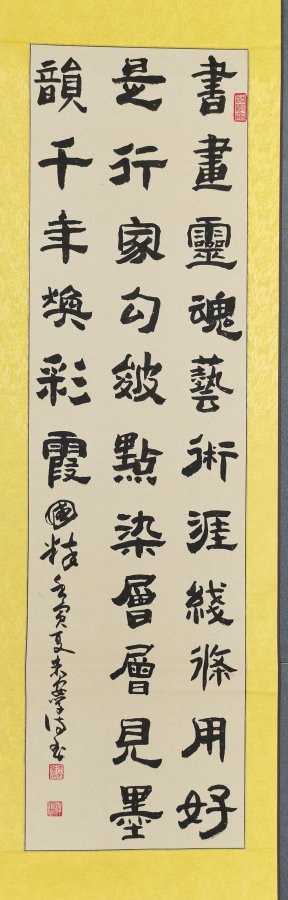 書畫靈魂藝術涯綫條用好
是行家勾皴點染層層見墨
韻千年煥彩霞 國粹 壬寅夏